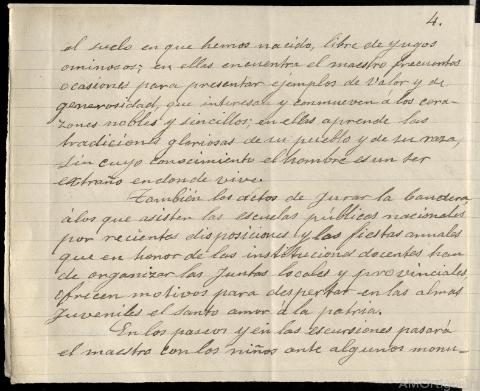 4.
el suelo en que hemos nacido, libre de yugos
ominosos; en ellas encuentra el maestro frecuentes
ocasiones para presentar ejemplos de valor y de
generosidad, que interesan y conmueven a los cora-
zones nobles y sencillos; en ellas aprende las
tradiciones gloriosas de su pueblo y de su raza,
sin cuyo conocimiento el hombre es un ser
extraño en donde vive.
También los actos de jurar la bandera
á los que asisten las escuelas públicas nacionales
por recientes disposiciones y las fiestas anuales
que en honor de las institucions docentes han
de organizar las Juntas locales y provinciales,
ofrecen motivos para despertar en las almas
juveniles el santo amor á la patria.
En los paseos y en las escursiones pasará
el maestro con los niños ante algunos monu-